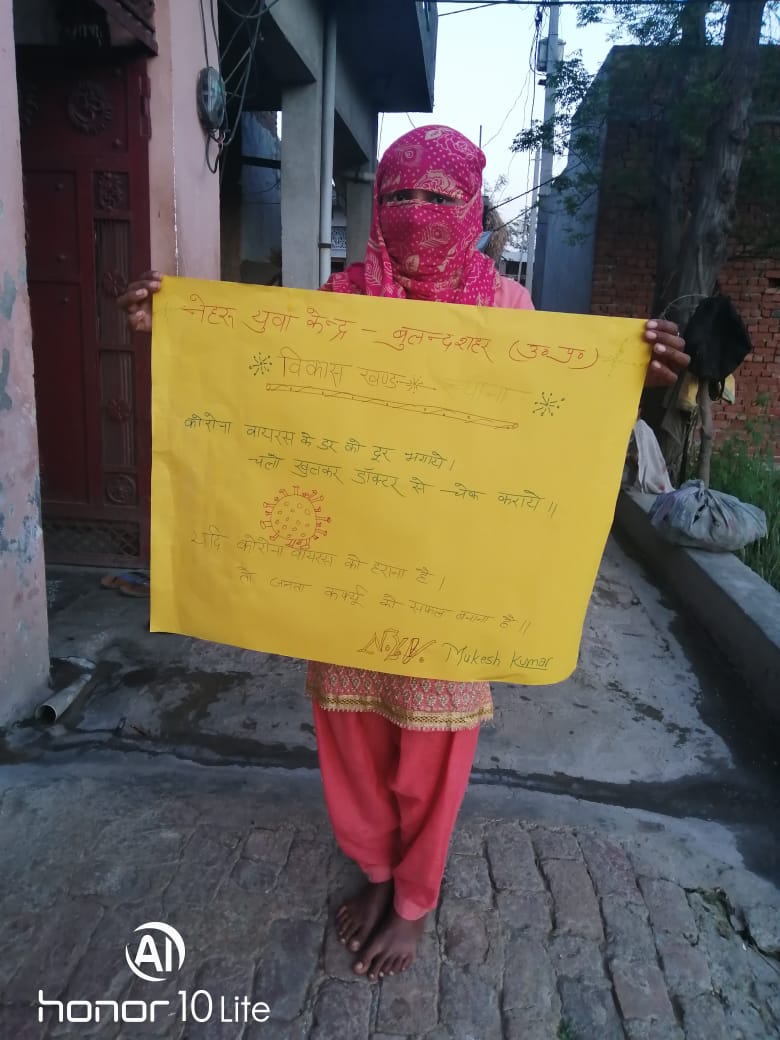 नेहरू युवा केन्द्र - बुलन्दशहर (उ० प्र०)
विकास खण्ड- स्याना
कोरोना वायरस के डर को दूर भगाये।
चलो खुलकर डॉक्टर से चेक कराये॥
यदि कोरोना वायरस को हराना है।
तो जनता कर्फ्यू को सफल बनाना है॥
N.Y.V. Mukesh Kumar
AI
honor 10 Lite